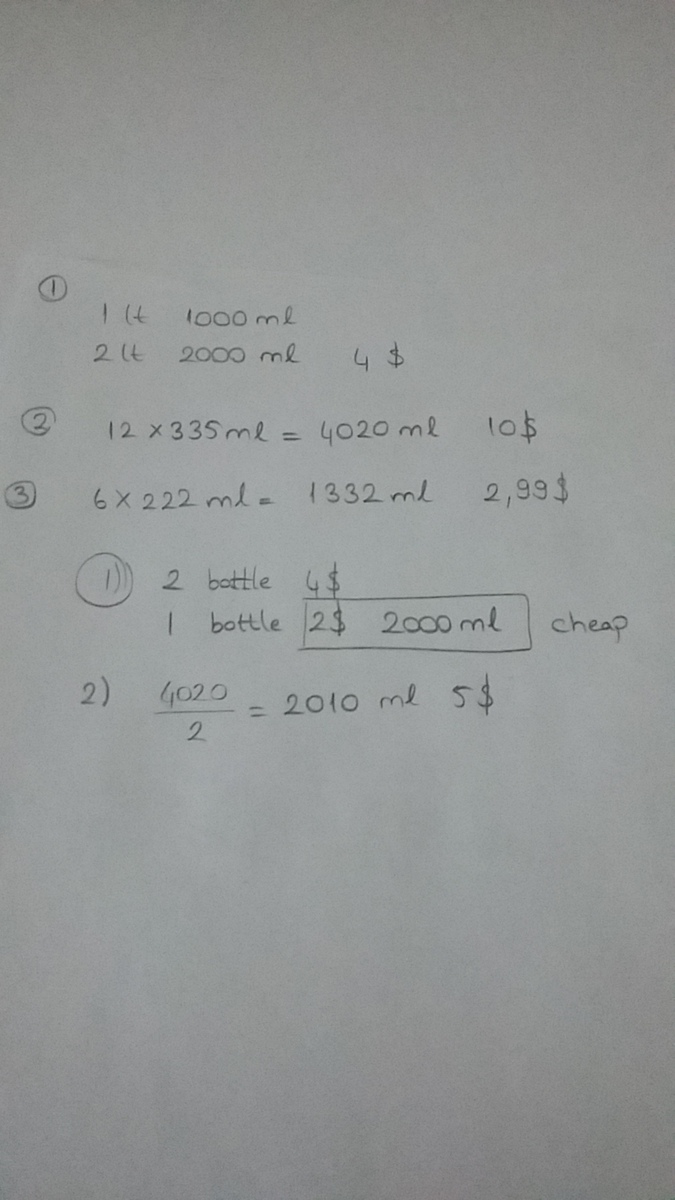 ①
1 lt 1000 ml
2 lt 2000 ml 4 $
② 12 x 335 ml = 4020 ml 10 $
③ 6 x 222 ml = 1332 ml 2,99 $
1)) 2 bottle 4 $
1 bottle 2 $ 2000 ml cheap
2) 4020
2 = 2010 ml 5 $